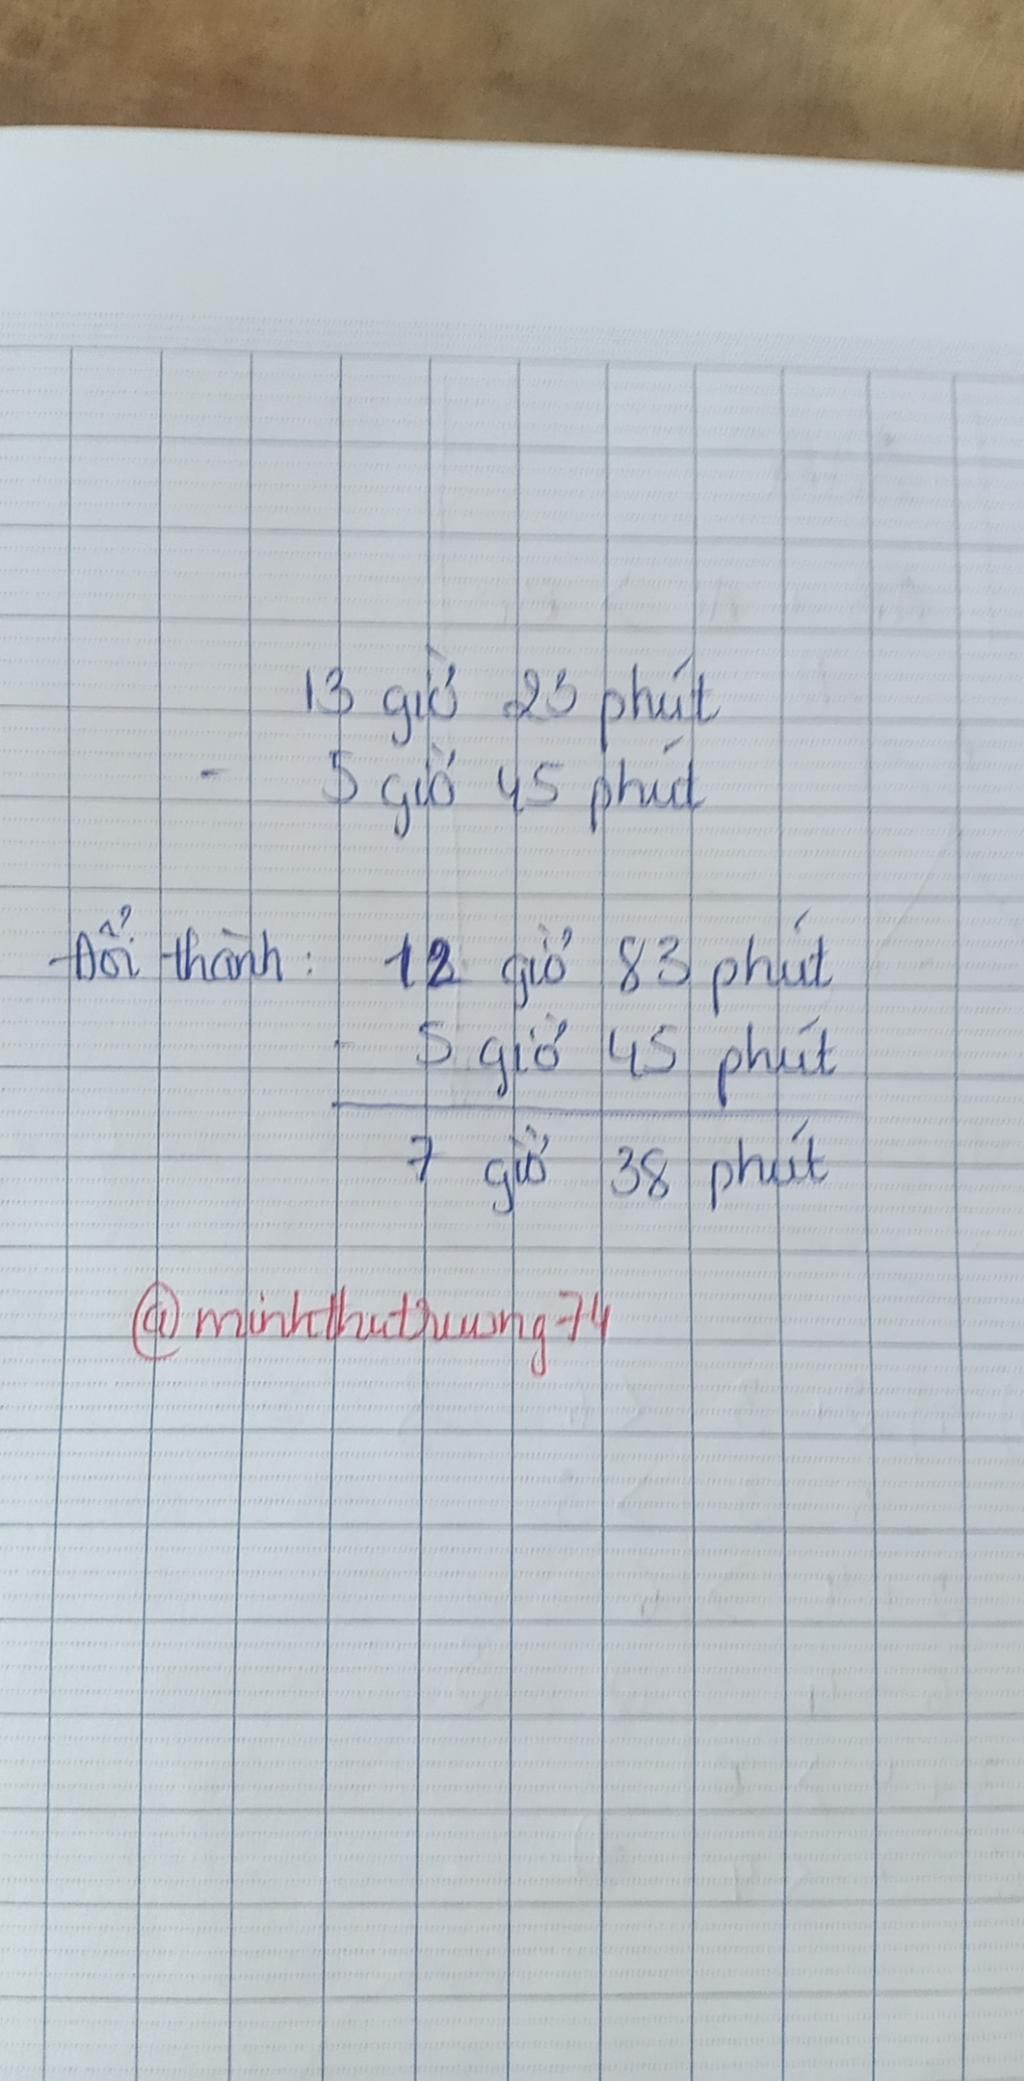 13 giờ 23 phút
- 5 giờ 45 phút
Đổi thành: 12 giờ 83 phút
- 5 giờ 45 phút
7 giờ 38 phút
@minhthutruong74